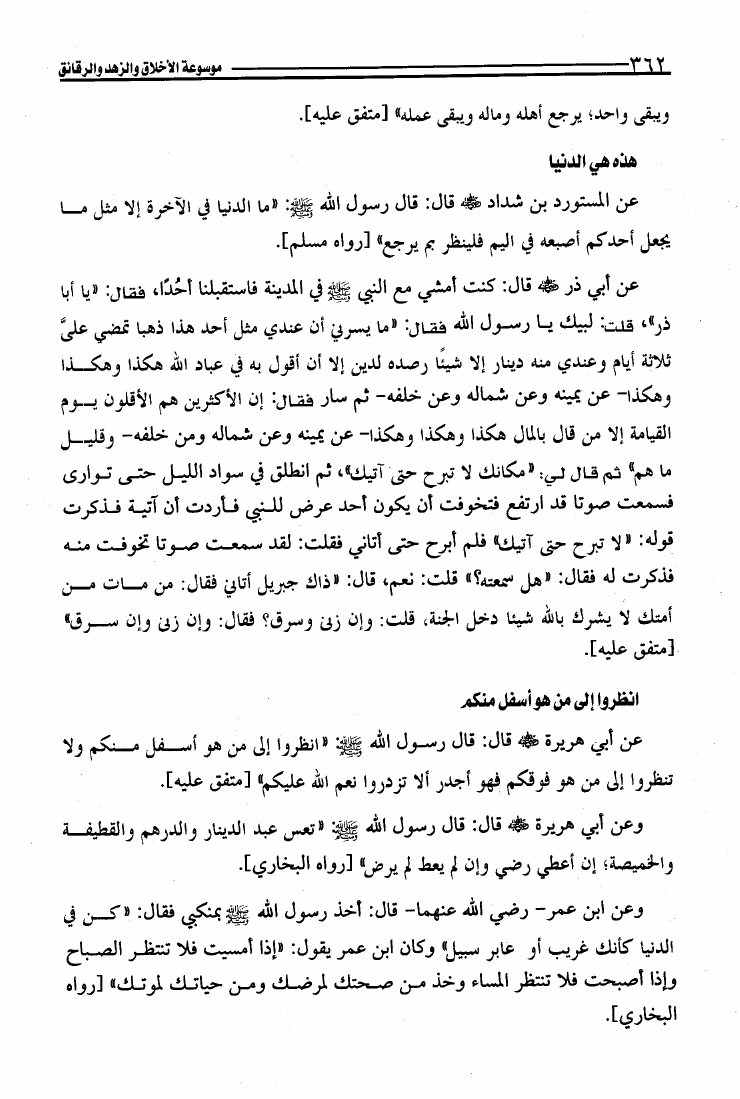 ٣٦٢ موسوعة الأخلاق والزهد والرقائق
ويبقى واحد؛ يرجع أهله وماله ويبقى عمله» [متفق عليه].
هذه هي الدنيا
عن المستورد بن شداد ﷺ قال: قال رسول الله ﷺ: «ما الدنيا في الآخرة إلا مثل مـا
يجعل أحدكم أصبعه في اليم فلينظر بم يرجع» [رواه مسلم].
عن أبي ذر ﷺ قال: كنت أمشي مع النبي ﷺ في المدينة فاستقبلنا أُحُدًا، فقال: «يا أبا
ذر»، قلت: لبيك يـا رسـول الله فقـال: «ما يسرني أن عندي مثل أحد هذا ذهبا تمضي عليَّ
ثلاثة أيام وعندي منه دينار إلا شيئًا رصده لدين إلا أن أقول به في عباد الله هكذا وهكـذا
وهكذا- عن يمينه وعن شماله وعن خلفه- ثم سار فقال: إن الأكثرين هم الأقلون يـوم
القيامة إلا من قال بالمال هكذا وهكذا وهكذا- عن يمينه وعن شماله ومن خلفه- وقليـل
ما هم» ثم قال لي: «مكانك لا تبرح حتى آتيك»، ثم انطلق في سواد الليـل حتـى تـوارى
فسمعت صوتا قد ارتفع فتخوفت أن يكون أحد عرض للـنبي فـأردت أن آتيـة فـذكرت
قوله: «لا تبرح حتى آتيك» فلم أبرح حتى أتاني فقلت: لقد سمعـت صـوتا تخوفـت منـه
فذكرت له فقال: «هل سمعته؟» قلت: نعم، قال: «ذاك جبريل أتاني فقال: من مـات مـن
أمتك لا يشرك بالله شيئا دخل الجنة، قلت: وإن زنى وسرق؟ فقال: وإن زنى وإن سـرق»
[متفق عليه].
انظروا إلى من هو أسفل منكم
عن أبي هريرة ﷺ قال: قال رسـول الله ﷺ: «انظروا إلى من هو أسـفل مـنكم ولا
تنظروا إلى من هو فوقكم فهو أجدر ألا تزدروا نعم الله عليكم» [متفق عليه].
وعن أبي هريرة ﷺ قال: قال رسول الله ﷺ: «تعس عبد الدينار والدرهم والقطيفـة
والخميصة؛ إن أعطي رضي وإن لم يعط لم يرض» [رواه البخاري].
وعن ابن عمر- رضي الله عنهما- قال: أخذ رسول الله ﷺ بمنكبي فقال: «كـن في
الدنيا كأنك غريب أو عابر سبيل» وكان ابن عمر يقول: «إذا أمسيت فلا تنتظـر الصـباح
وإذا أصبحت فلا تنتظر المساء وخذ مـن صـحتك لمرضـك ومـن حياتـك لموتـك» [رواه
البخاري].